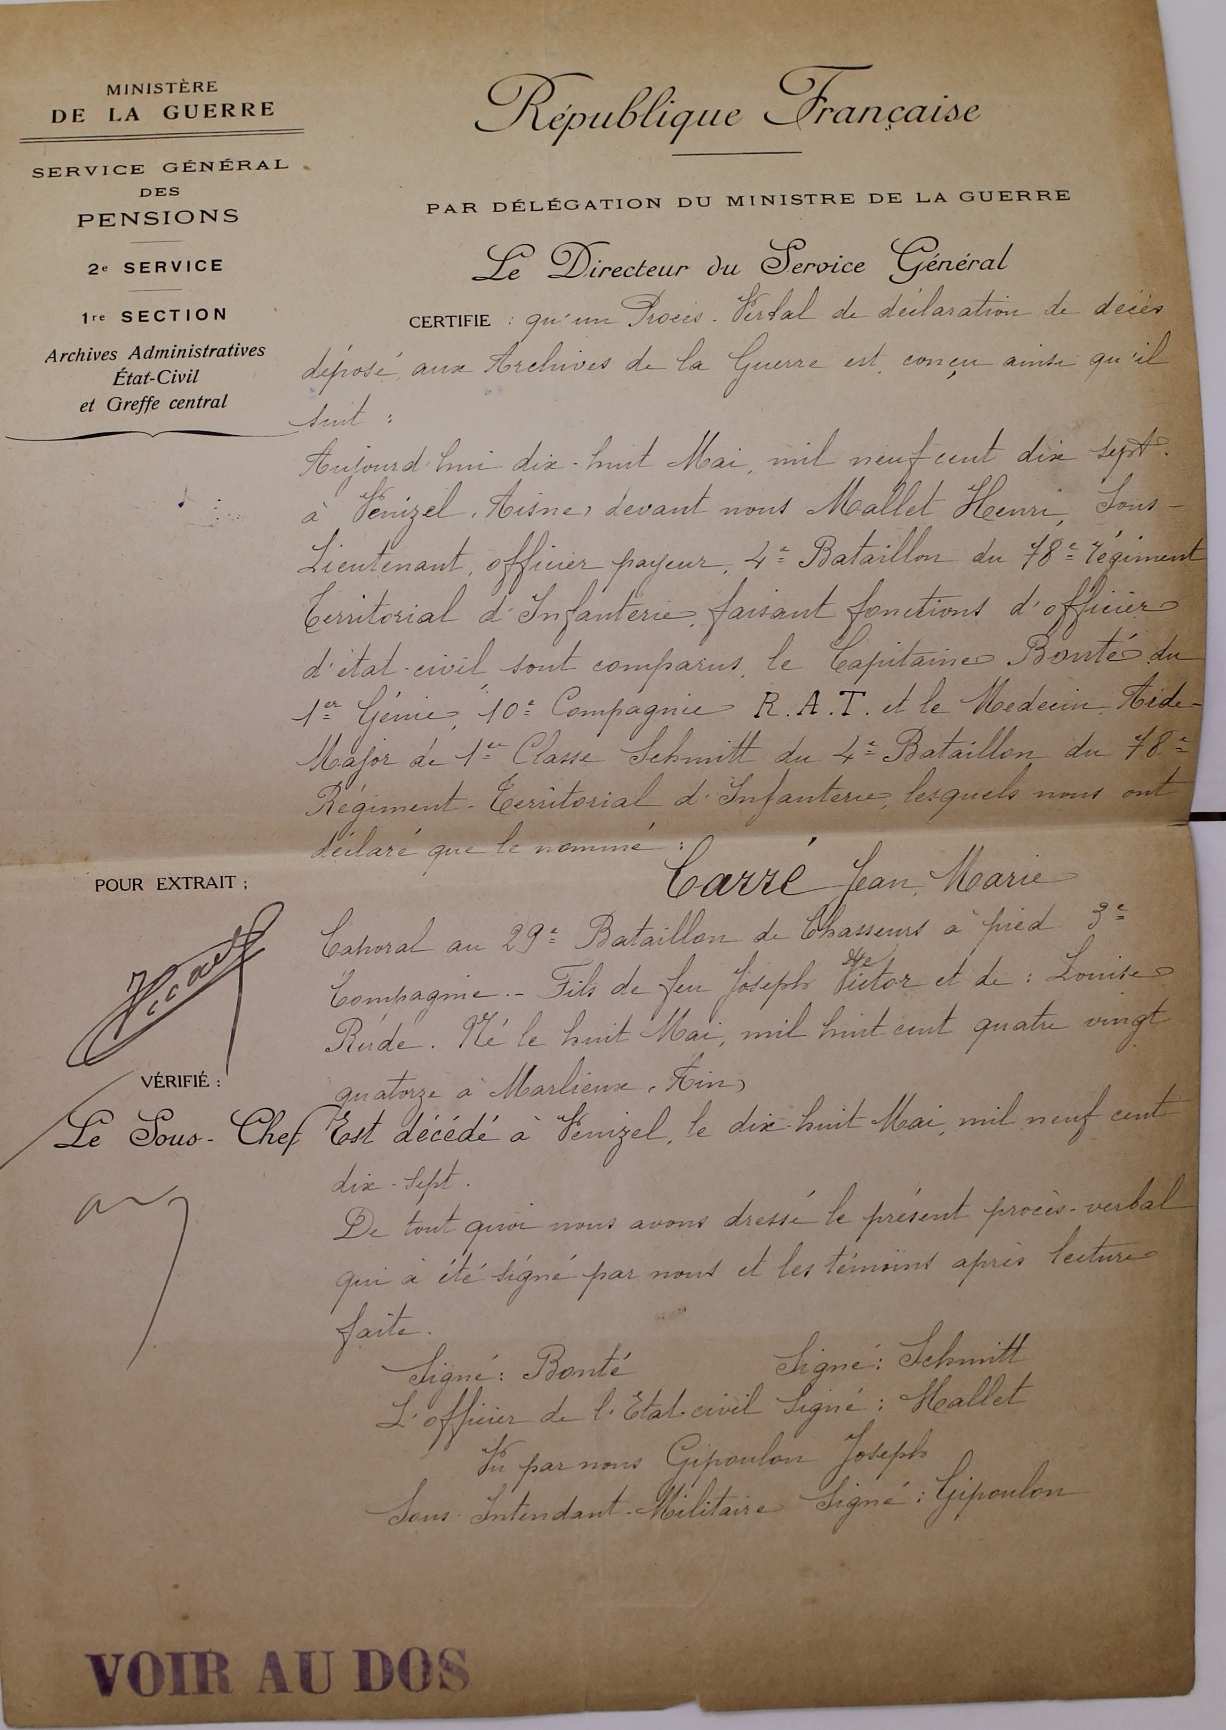 MINISTÈRE
DE LA GUERRE
SERVICE GÉNÉRAL
DES
PENSIONS
2e SERVICE
1re SECTION
Archives Administratives
État-Civil
et Greffe central
République Française
PAR DÉLÉGATION DU MINISTRE DE LA GUERRE
Le Directeur du Service Général
CERTIFIE : qu'un Procès-Verbal de déclaration de décès
déposé aux Archives de la Guerre est conçu ainsi qu'il
suit :
Aujourd'hui dix-huit Mai, mil neuf cent dix sept.
à Venizel (Aisne) devant nous Mallet Henri, Sous-
Lieutenant, officier payeur, 4e Bataillon du 78e régiment
Territorial d'Infanterie, faisant fonctions d'officier
d'état-civil sont comparus, le Capitaine Bonté du
1er Génie, 10e Compagnie R.A.T. et le Medecin Aide-
Major de 1ere Classe Schmitt du 4e Bataillon du 78e
Régiment-Territorial d'Infanterie, lesquels nous ont
déclaré que le nommé :
Carré Jean, Marie
Caporal au 29e Bataillon de Chasseurs à pied 3e
Compagnie. - Fils de feu Joseph Victor et de : Louise
Rude. Né le huit Mai, mil huit cent quatre vingt
quatorze à Marlieux (Ain)
Est décédé à Venizel, le dix-huit Mai, mil neuf cent
dix-sept.
De tout quoi nous avons dressé le présent procès-verbal
qui à été signé par nous et les témoins après lecture
faite.
Signé : Bonté Signé : Schmitt
L'officier de l'Etat-civil Signé : Mallet
Vu par nous Gipoulon Joseph
Sous-Intendant-Militaire Signé : Gipoulon
POUR EXTRAIT :
VÉRIFIÉ :
Le Sous-Chef
VOIR AU DOS